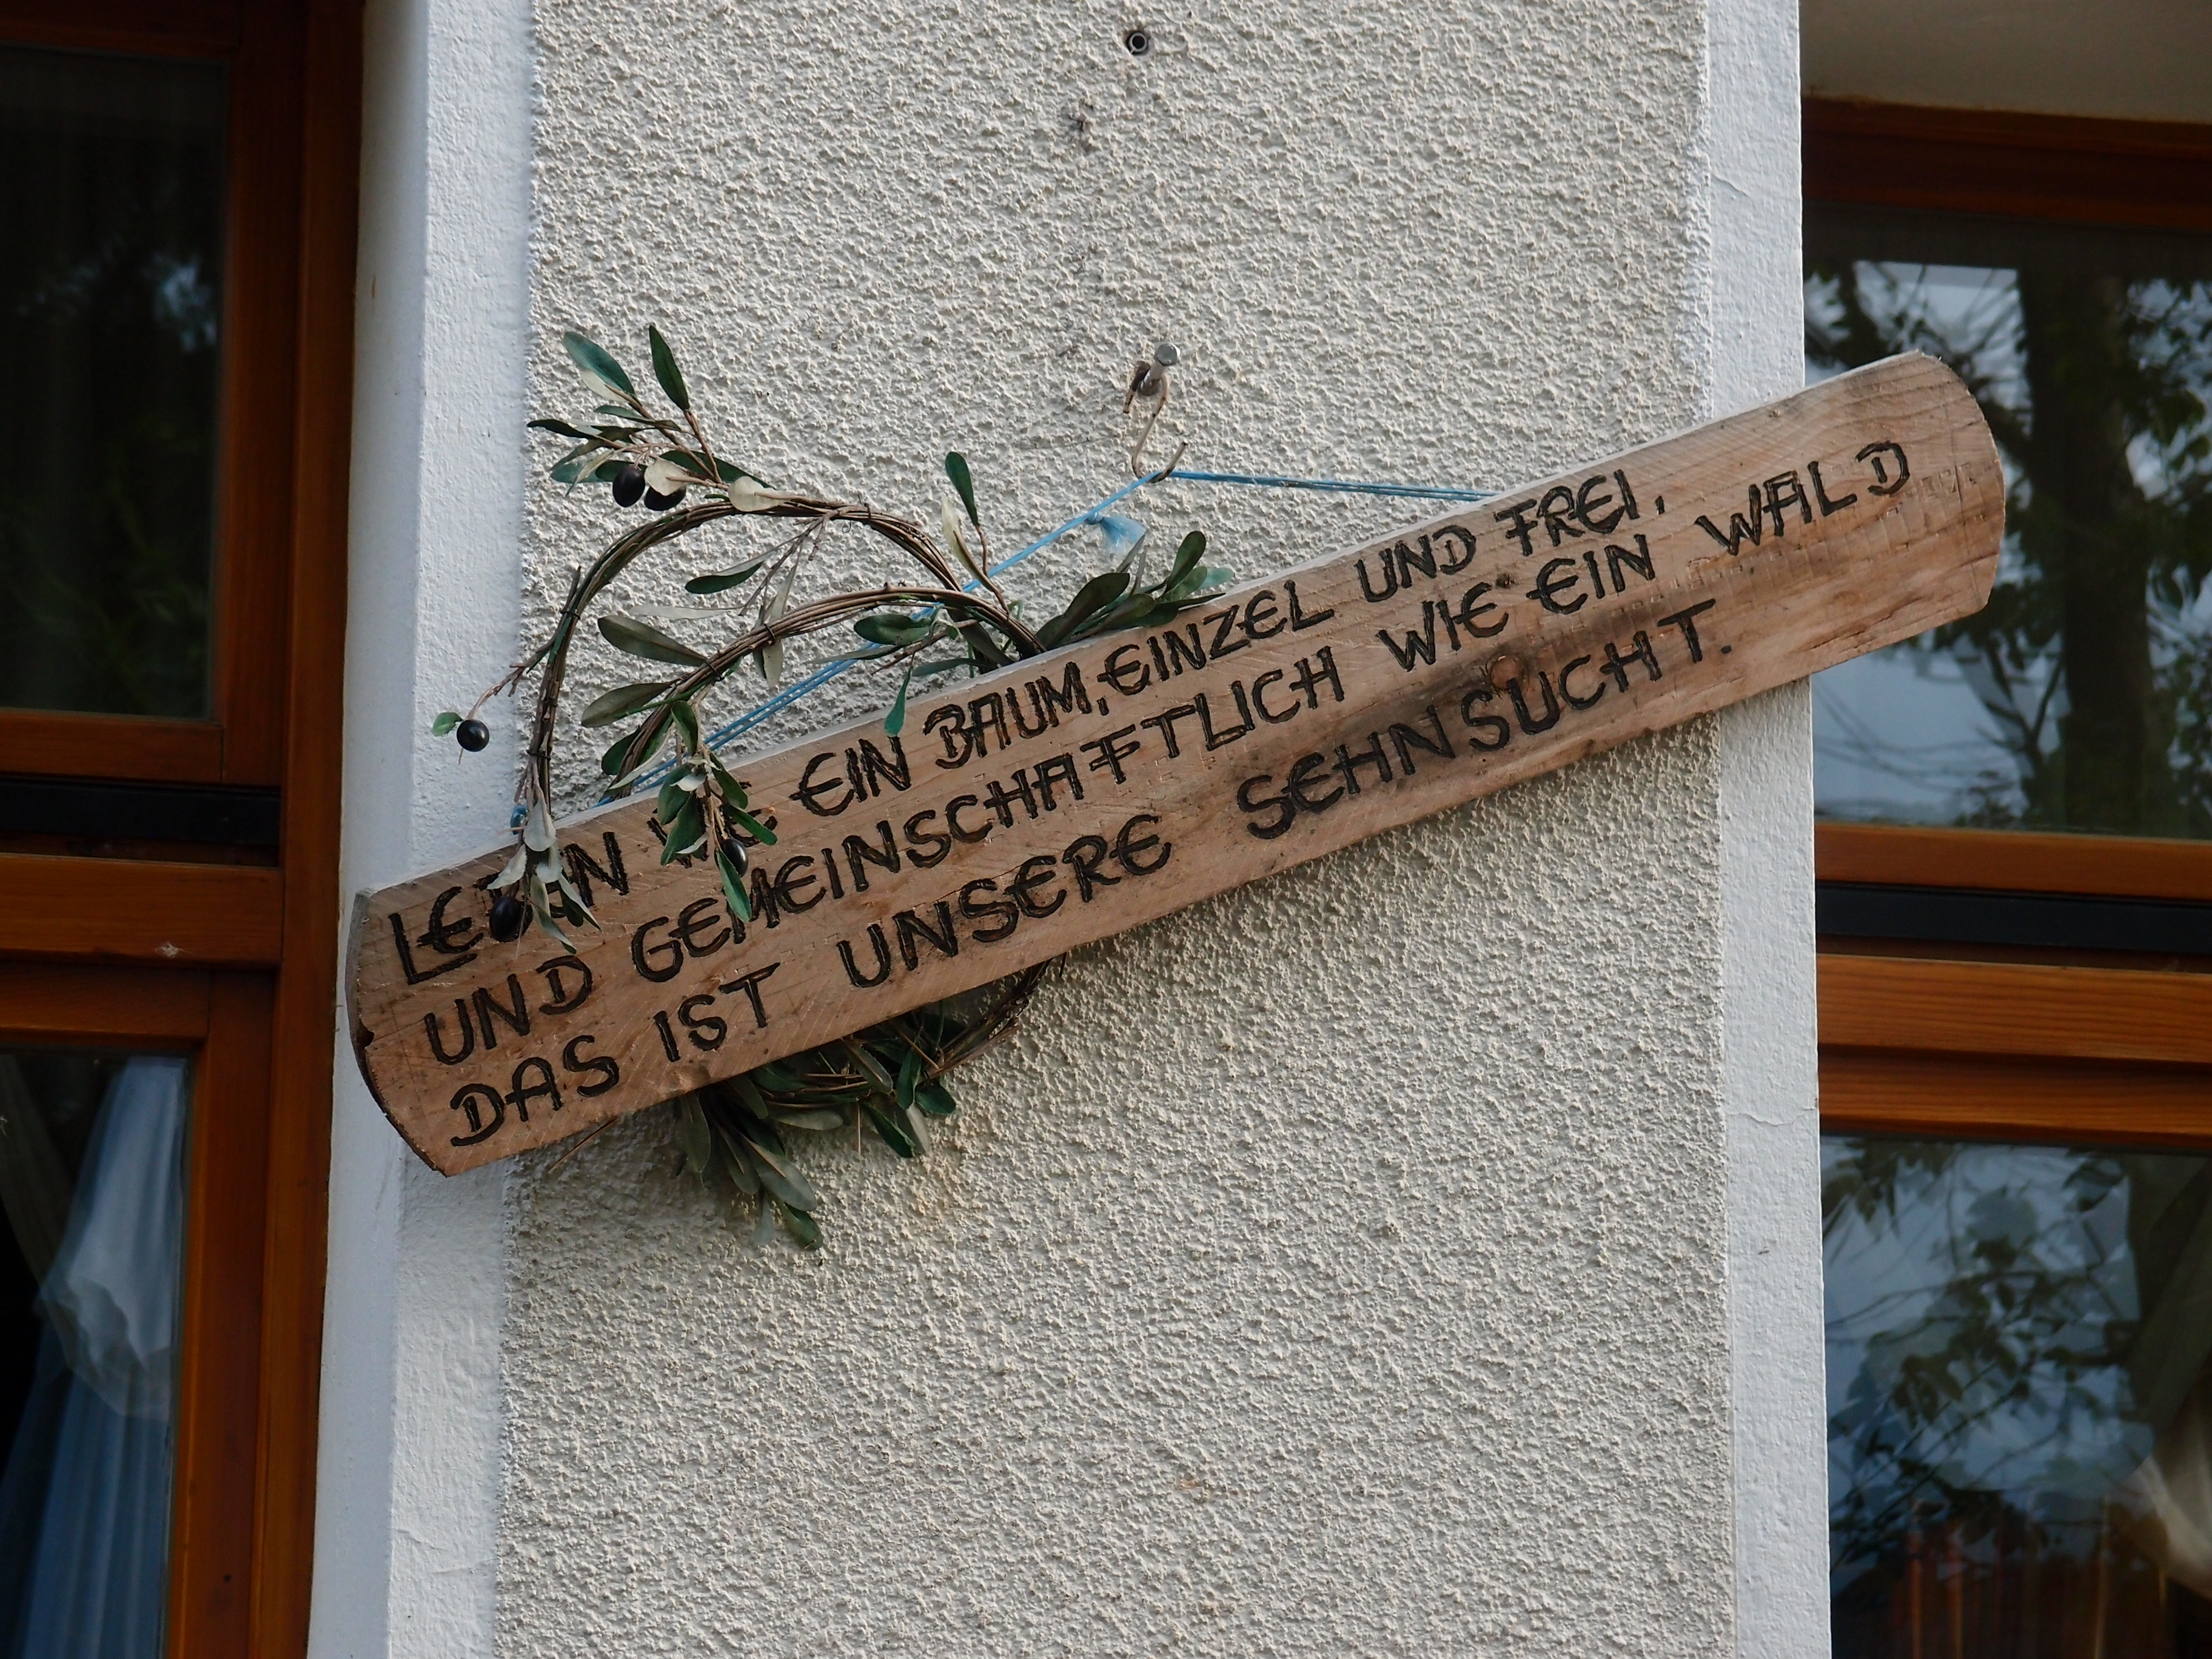 LEBEN WIE EIN BAUM, EINZEL UND FREI,
UND GEMEINSCHAFTLICH WIE EIN WALD
DAS IST UNSERE SEHNSUCHT.